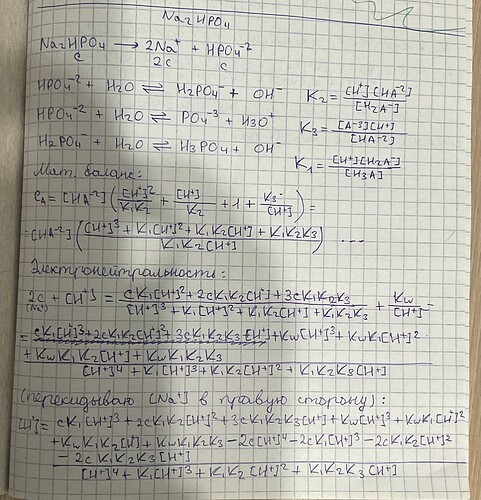 Na2HPO4
Na2HPO4 → 2Na⁺ + HPO4⁻²
c 2c c
HPO4⁻² + H2O ⇌ H2PO4⁻ + OH⁻ K2 = [H⁺][HA⁻²] / [H2A⁻]
HPO4⁻² + H2O ⇌ PO4⁻³ + H3O⁺ K3 = [A⁻³][H⁺] / [HA⁻²]
H2PO4⁻ + H2O ⇌ H3PO4 + OH⁻ K1 = [H⁺][H2A⁻] / [H3A]
Мат. баланс:
CA = [HA⁻²] ([H⁺]² / K1K2 + [H⁺] / K2 + 1 + K3 / [H⁺]) =
= [HA⁻²] ([H⁺]³ + K1[H⁺]² + K1K2[H⁺] + K1K2K3 / K1K2[H⁺]) ....
Электронейтральность:
2c (Na⁺) + [H⁺] = cK1[H⁺]² + 2cK1K2[H⁺] + 3cK1K2K3 / [H⁺]³ + K1[H⁺]² + K1K2[H⁺] + K1K2K3 + Kw / [H⁺] =
= cK1[H]³ + 2cK1K2[H⁺]² + 3cK1K2K3[H⁺] + Kw[H⁺]³ + KwK1[H⁺]² +
+ KwK1K2[H⁺] + KwK1K2K3
/ [H⁺]⁴ + K1[H⁺]³ + K1K2[H⁺]² + K1K2K3[H⁺]
(перекидываю [Na⁺] в правую сторону):
[H⁺] = cK1[H⁺]³ + 2cK1K2[H⁺]² + 3cK1K2K3[H⁺] + Kw[H⁺]³ + KwK1[H⁺]²
+ KwK1K2[H⁺] + KwK1K2K3 − 2c[H⁺]⁴ − 2cK1[H⁺]³ − 2cK1K2[H⁺]²
− 2cK1K2K3[H⁺]
/ [H⁺]⁴ + K1[H⁺]³ + K1K2[H⁺]² + K1K2K3[H⁺]